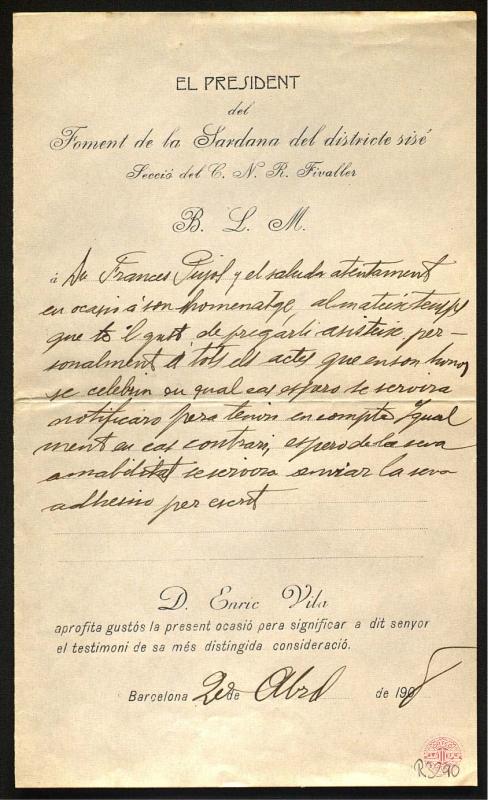 EL PRESIDENT
del
Foment de la Sardana del districte sisé
Secció del C. N. R. Fivaller
B. L. M.
á Dn Frances Pujol y el saluda atentament
en ocasió á son homenatge, al mateix temps
que té 'l gust de pregarli asisteix per-
sonalment á tots els actes que en son honor
se celebrin en qual cas espero se servira
notificaro pera tenir en compte. Igual
ment en cas contrari, espero de la seva
amabilitat se servira enviar la seva
adhesio per escrit
D. Enric Vila
aprofita gustós la present ocasió pera significar a dit senyor
el testimoni de sa més distingida consideració.
Barcelona 2 de Abril de 1908
R3290